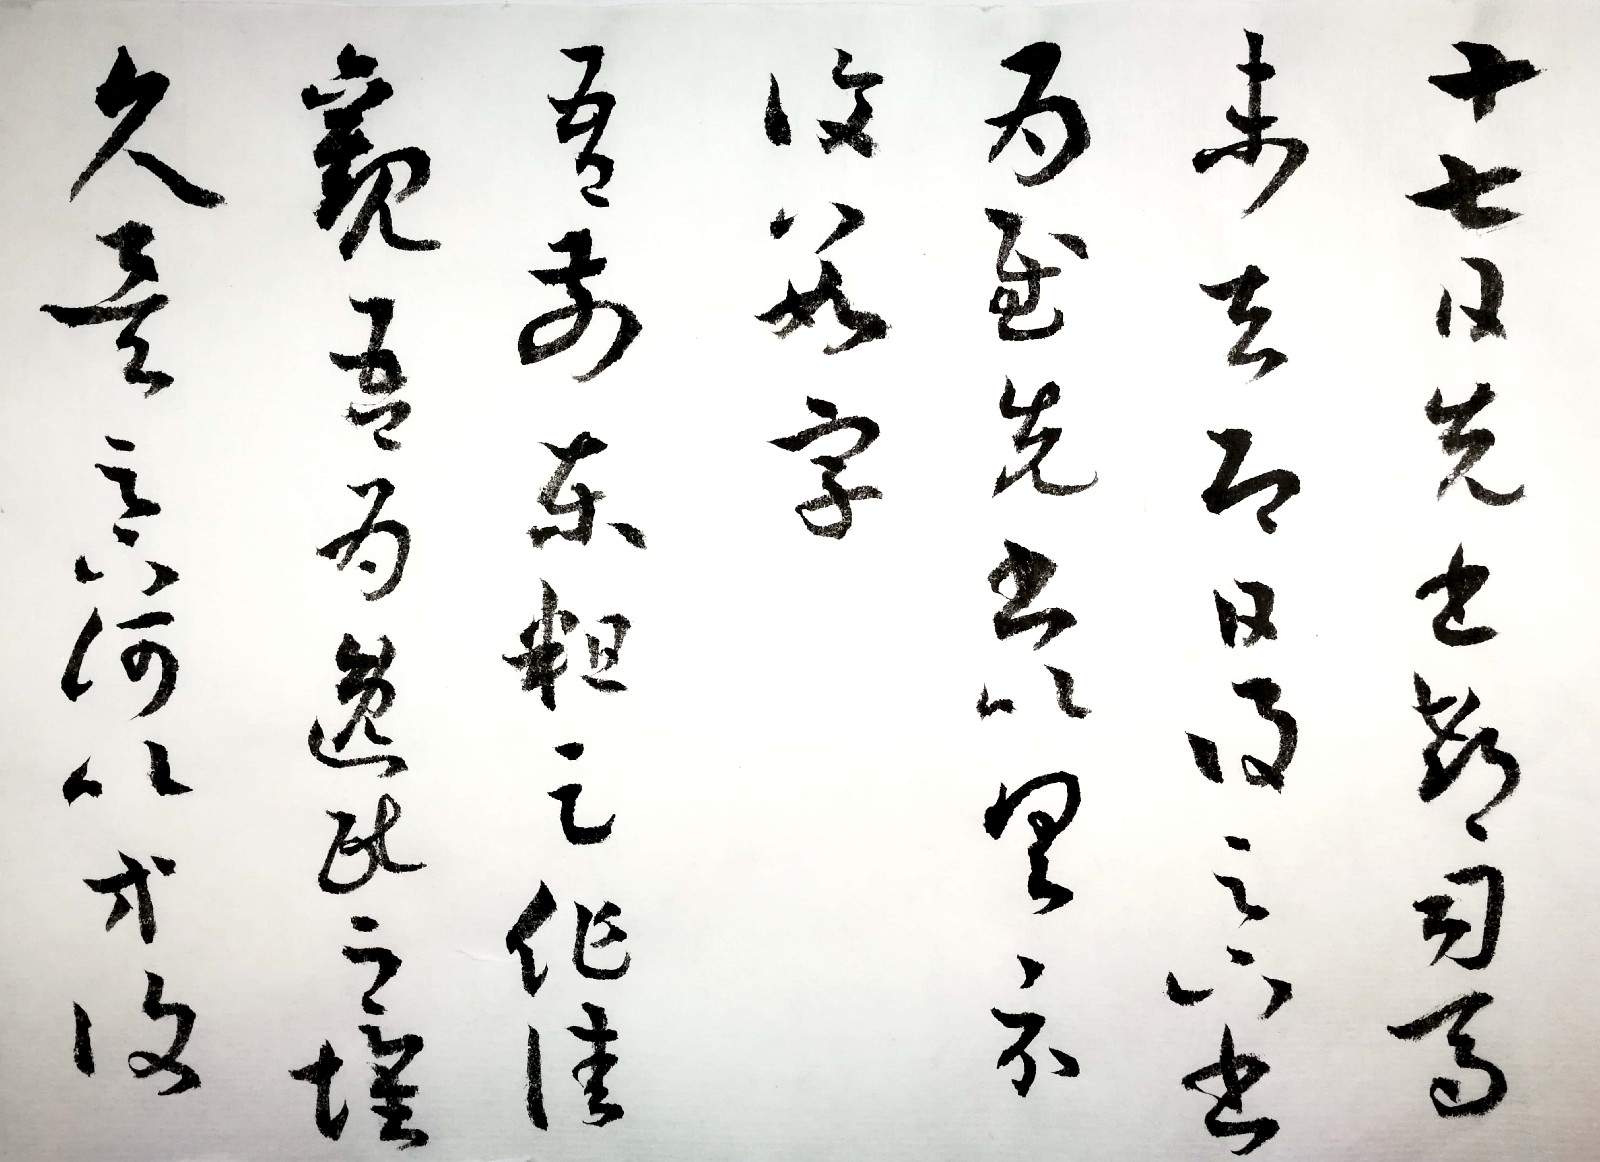 十七日先書郗司馬
未去即日得足下書
為慰先書以具示
復數字
吾前東粗足作佳
觀吾為逸民之懷
久矣足下何以方復